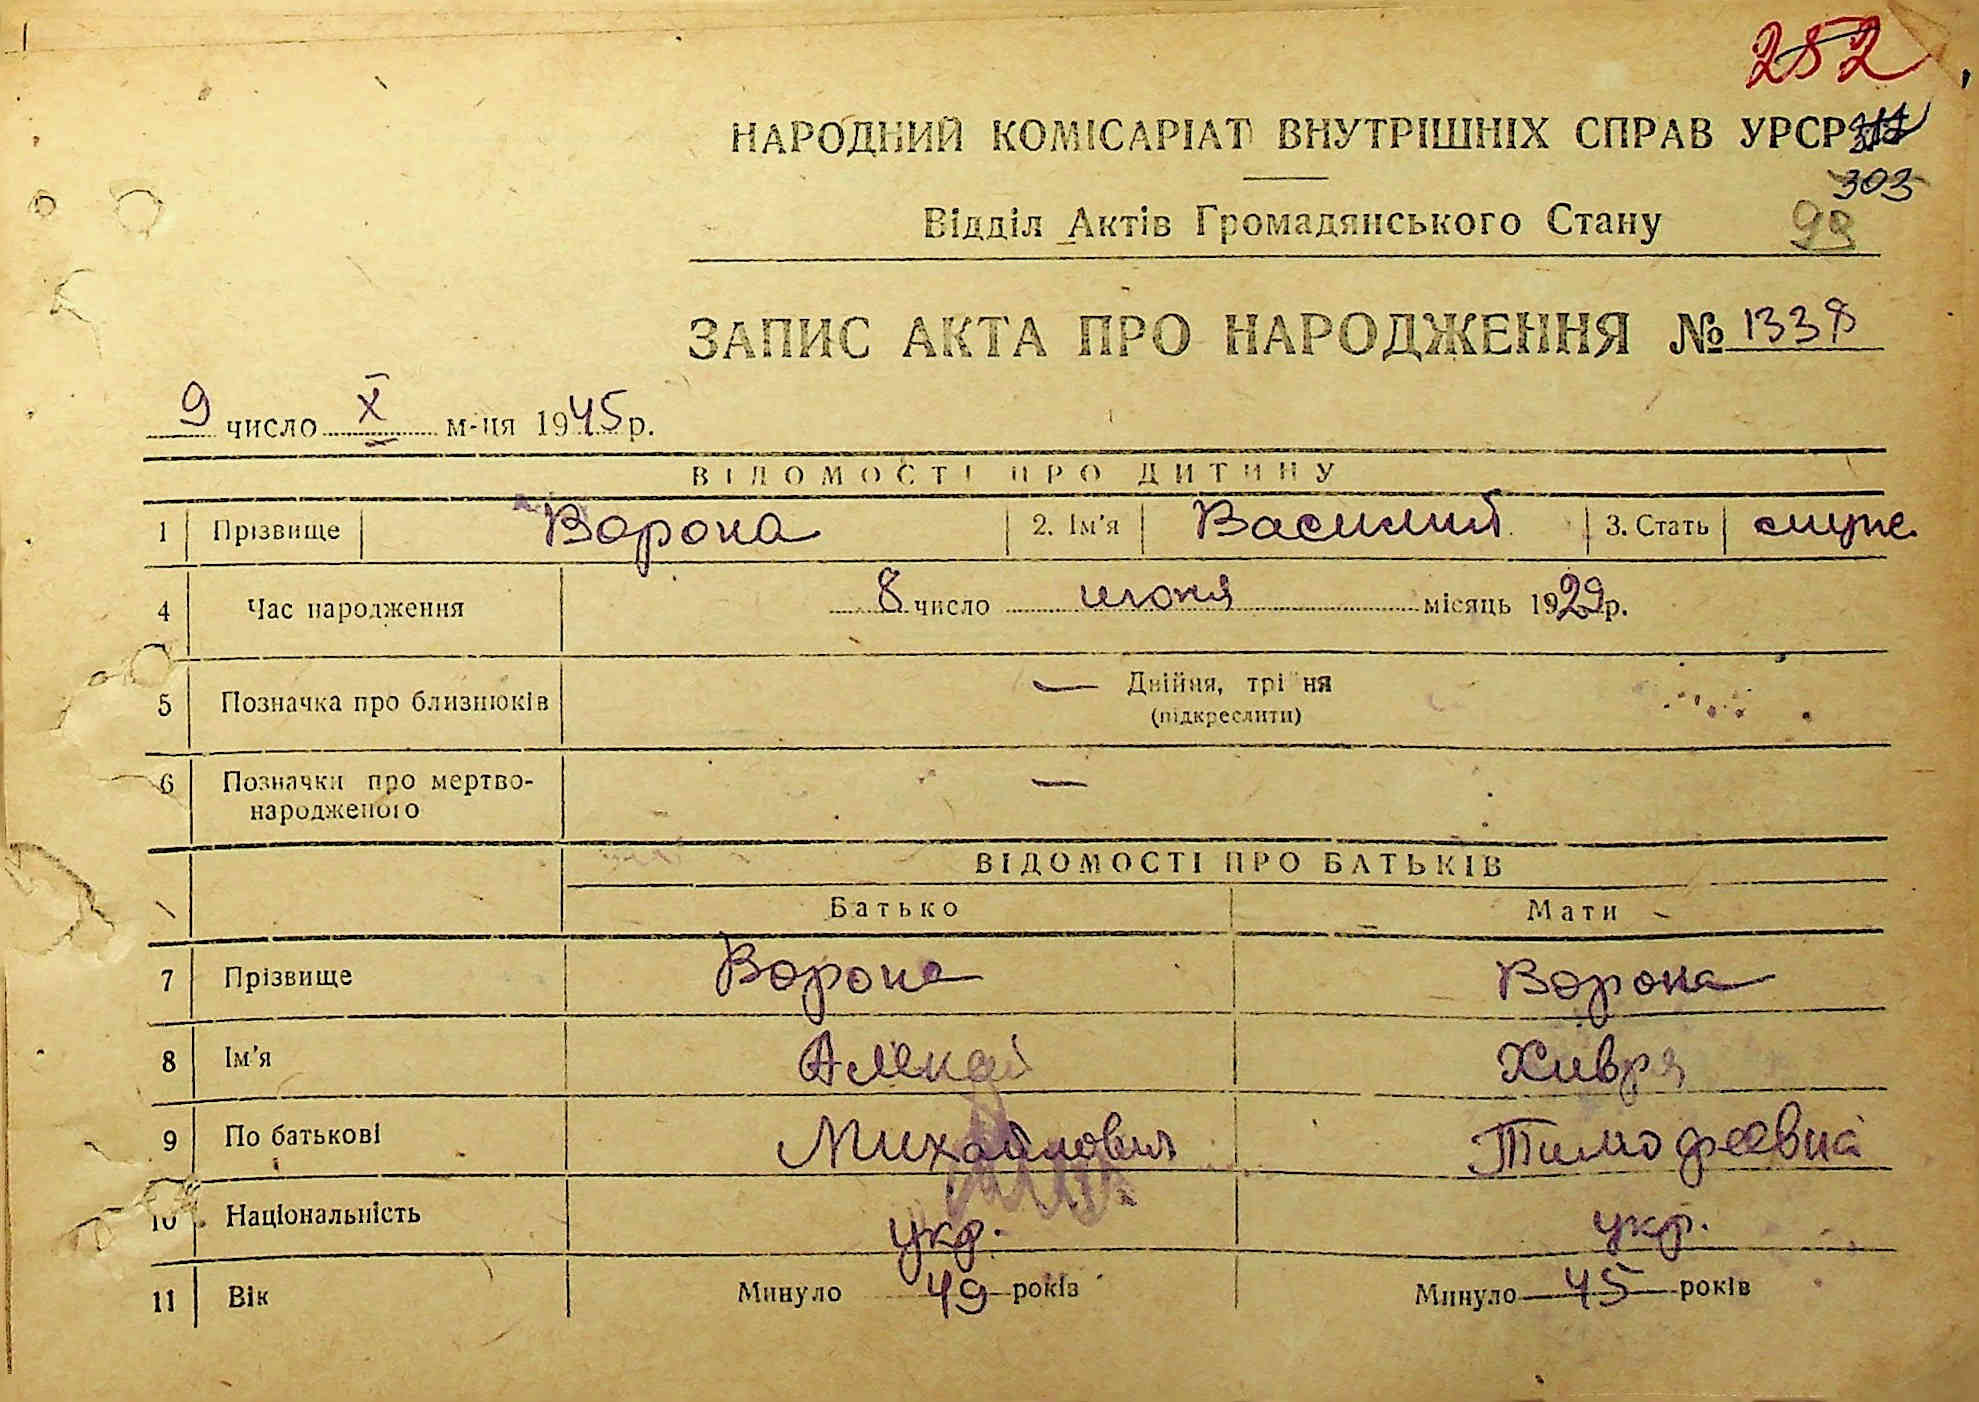 252
НАРОДНИЙ КОМІСАРІАТ ВНУТРІШНІХ СПРАВ УРСР
303
Відділ Актів Громадянського Стану 99
ЗАПИС АКТА ПРО НАРОДЖЕННЯ № 1338
9 число X м-ця 1945 р.
ВІДОМОСТІ ПРО ДИТИНУ
1 Прізвище Ворона 2. Ім'я Василий 3. Стать муж.
4 Час народження 8 число июня місяць 1929 р.
5 Позначка про близнюків — Двійня, трійня
(підкреслити)
6 Позначки про мертво-
народженого —
ВІДОМОСТІ ПРО БАТЬКІВ
Батько Мати
7 Прізвище Ворона Ворона
8 Ім'я Хивря
9 По батькові Михайлович Тимофеевна
10 Національність укр. укр.
11 Вік Минуло 49 років Минуло 45 років